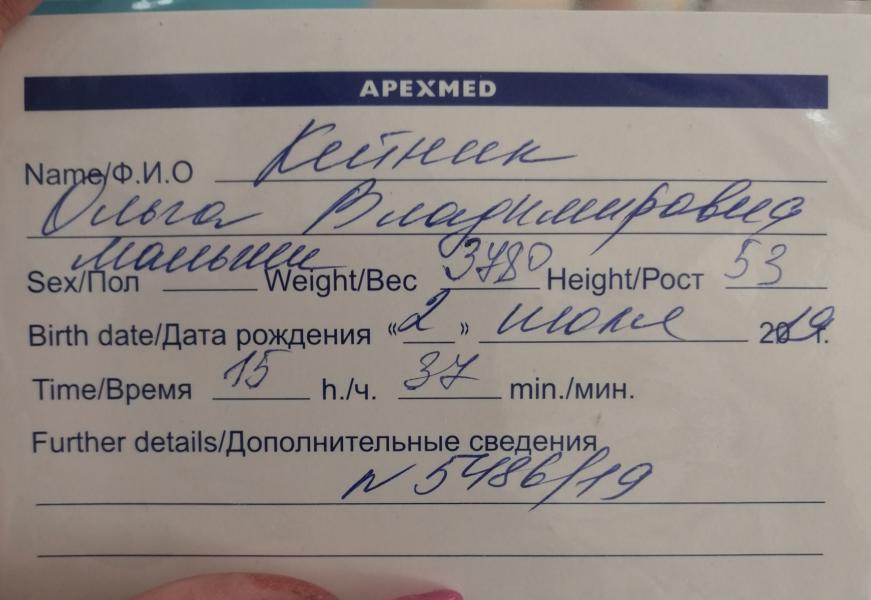 APEXMED
Name/Ф.И.О Кейник
Ольга Владимировна
мальчик
Sex/Пол Weight/Вес 3780 Height/Рост 53
Birth date/Дата рождения «2» июля 2019г.
Time/Время 15 h./ч. 37 min./мин.
Further details/Дополнительные сведения
N 5486/19